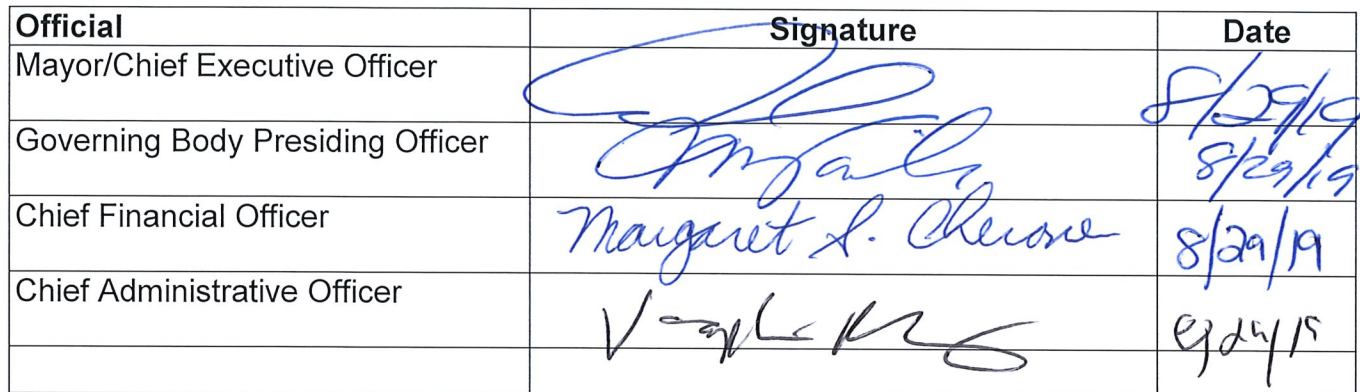 Official Signature Date
Mayor/Chief Executive Officer 8/29/19
Governing Body Presiding Officer 8/29/19
Chief Financial Officer Margaret S. Cherone 8/29/19
Chief Administrative Officer